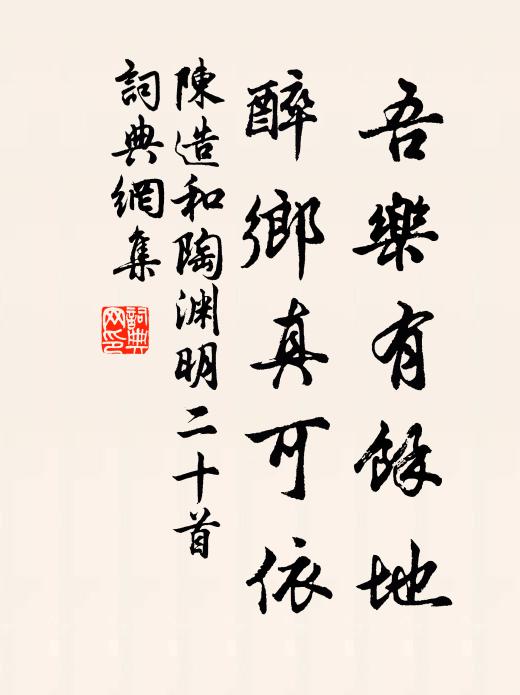 吾樂有餘地
醉鄉真可依
陳造和陶渊明二十首
詞典網集
詞典网印